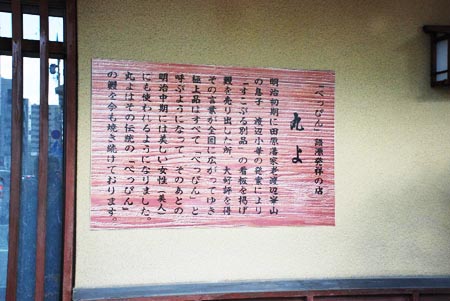 「べっぴん」語源発祥の店
丸よ
明治初期に田原藩家老渡辺崋山
の息子 渡辺小華の発案により
「すこぶる別品」の看板を掲げ
鰻を売り出した所 大好評を得
その言葉が全国に広がってゆき
極上品はすべて「べっぴん」と
呼ぶようになって そのあとの
明治中期には美しい女性(美人)
にも使われるようになりました。
丸よはその伝統の「べっぴん」
の鰻を今も焼き続けております。